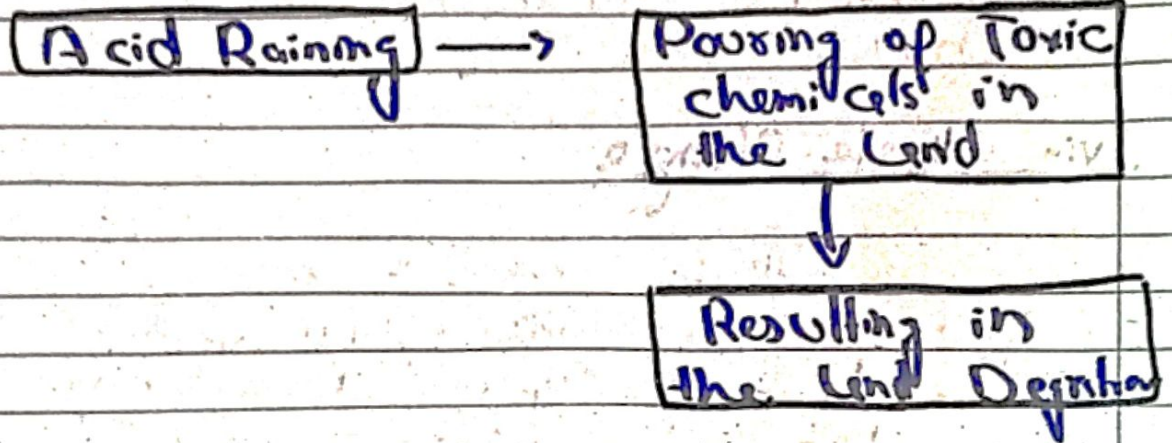 Acid Raining
Pouring of Toxic
chemicals in
the Land
Resulting in
the Land